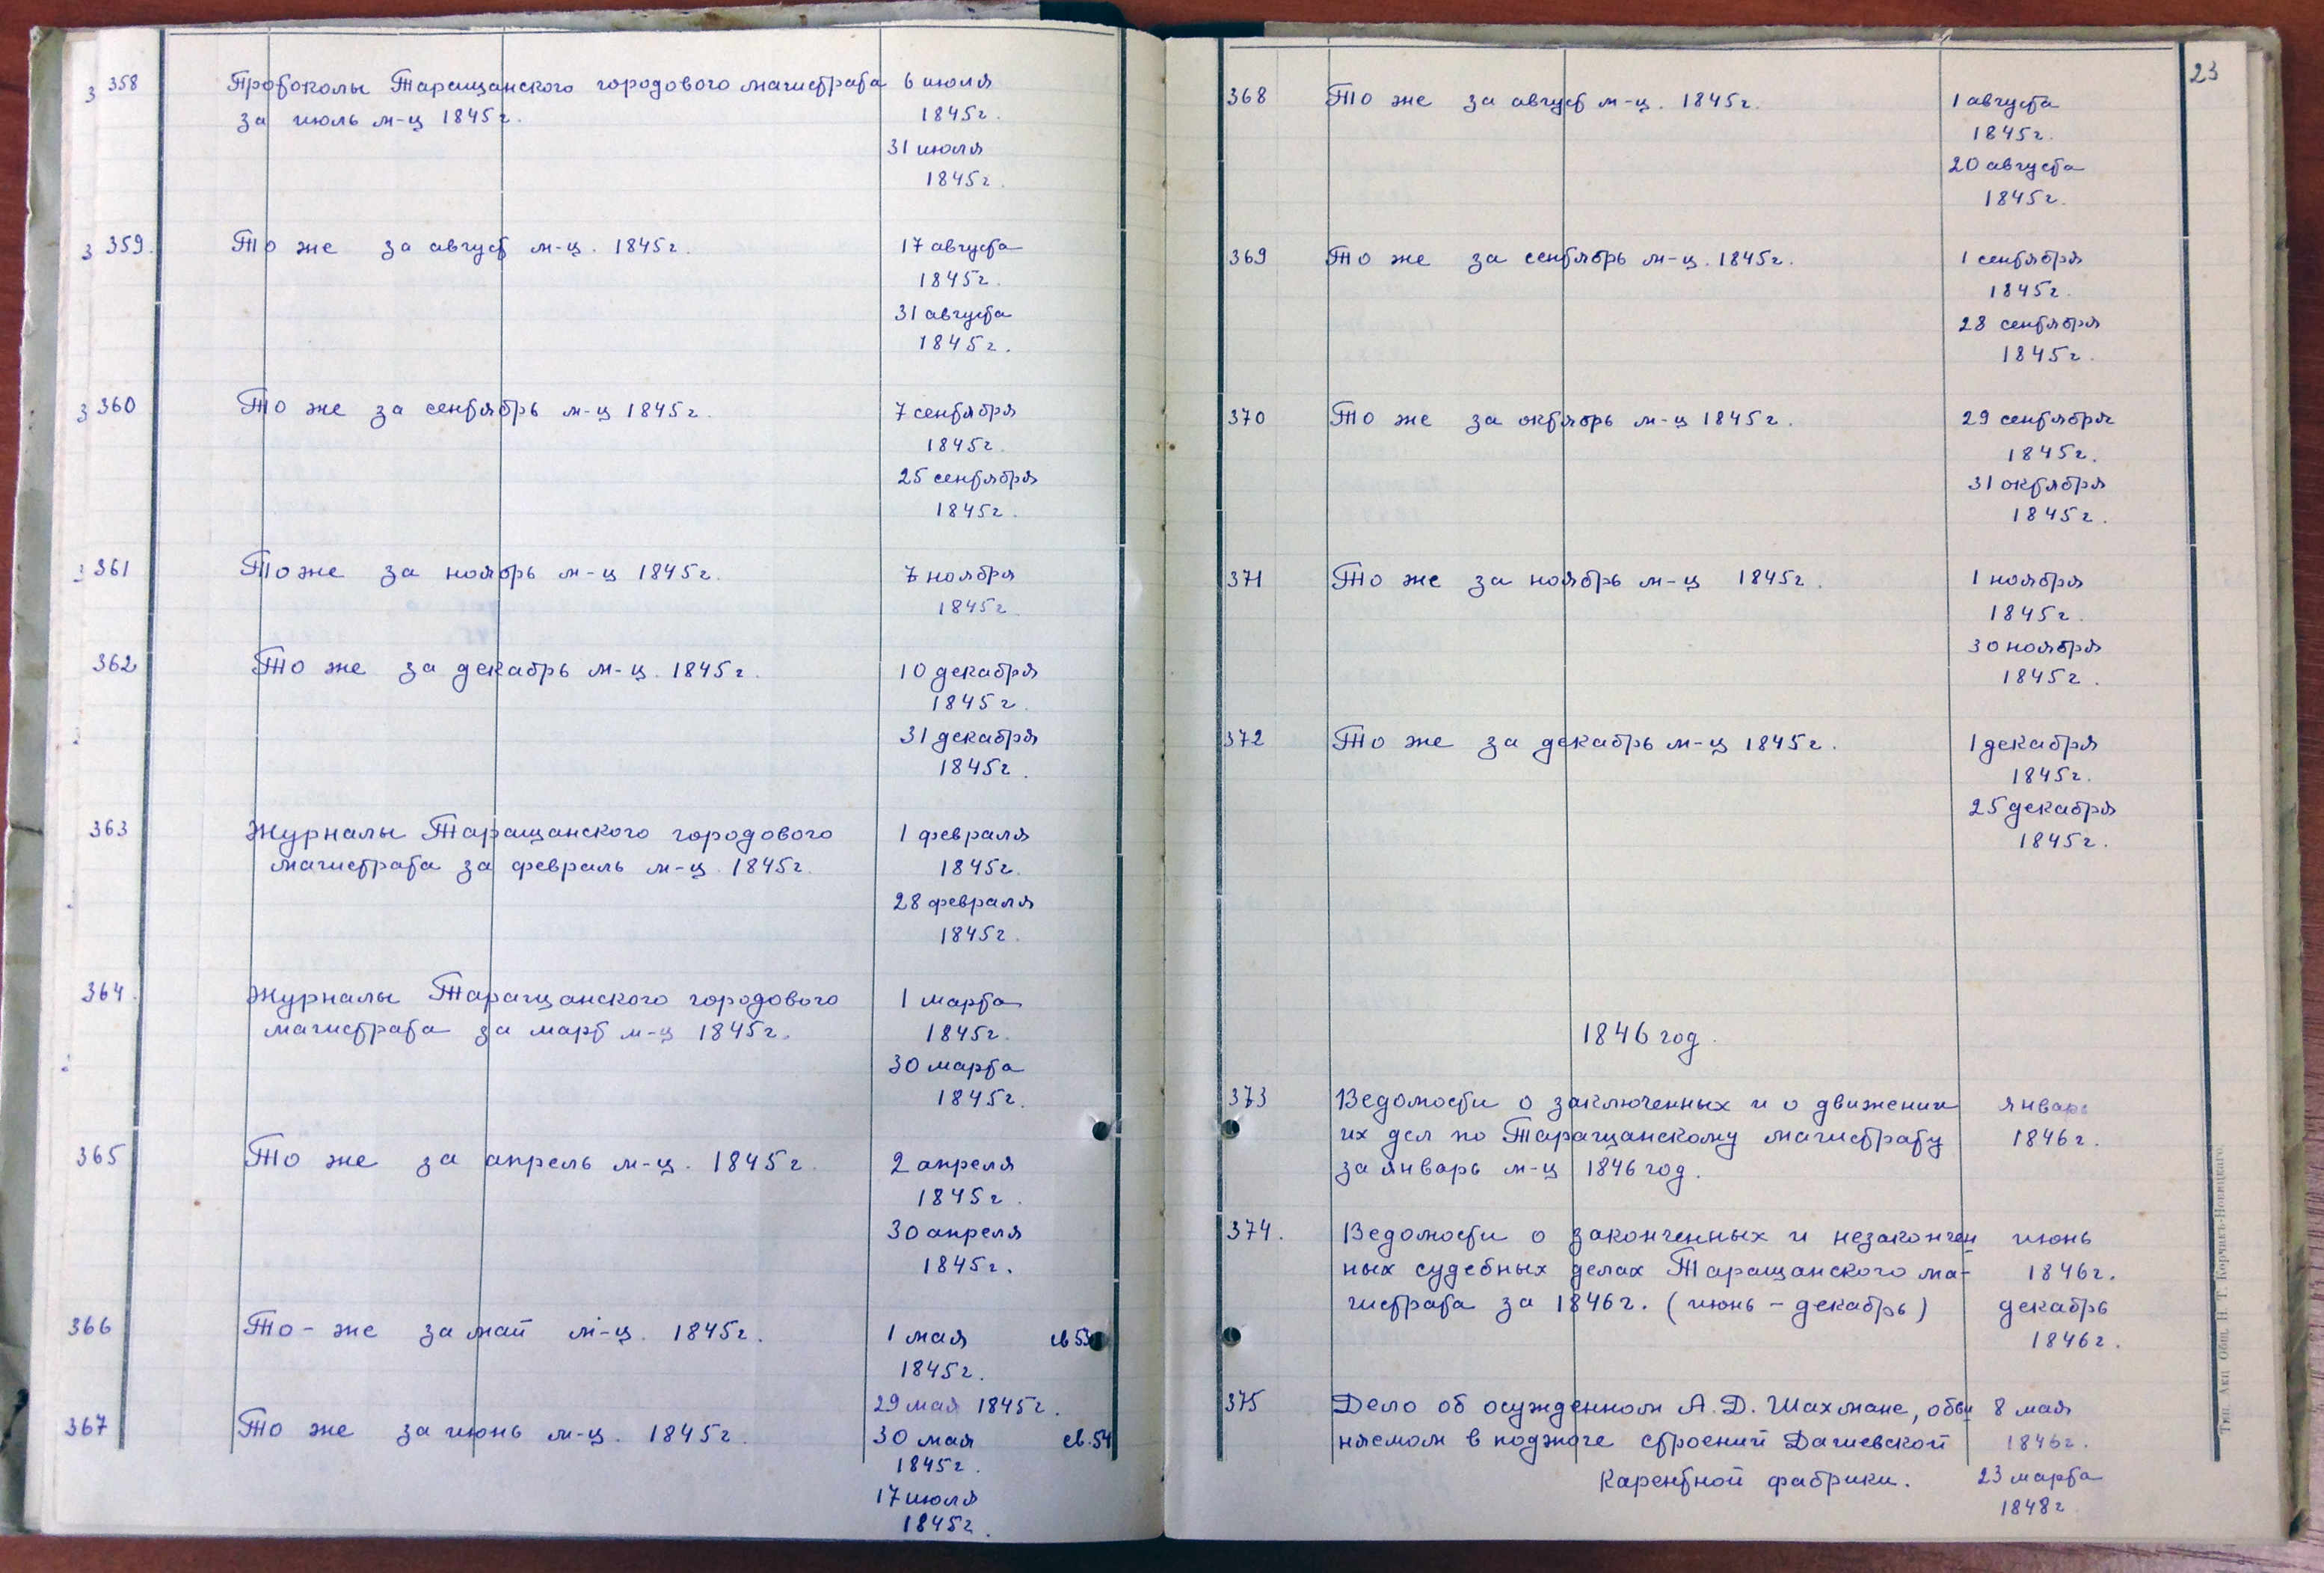 358 Протоколы Таращанского городового магистрата 6 июля
за июль м-ц 1845г. 1845г.
31 июля
1845г.
359. То же за август м-ц. 1845г. 17 августа
1845г.
31 августа
1845г.
360 То же за сентябрь м-ц 1845г. 7 сентября
1845г.
25 сентября
1845г.
361 Тоже за ноябрь м-ц 1845г. 7 ноября
1845г.
362 То же за декабрь м-ц. 1845г. 10 декабря
1845г.
31 декабря
1845г.
363 Журналы Таращанского городового 1 февраля
магистрата за февраль м-ц. 1845г. 1845г.
28 февраля
1845г.
364. Журналы Таращанского городового 1 марта
магистрата за март м-ц 1845г. 1845г.
30 марта
1845г.
365 То же за апрель м-ц. 1845г. 2 апреля
1845г.
30 апреля
1845г.
366 То-же за май м-ц. 1845г. 1 мая св 53
1845г.
29 мая 1845г.
367 То же за июнь м-ц. 1845г. 30 мая св.54
1845г.
17 июля
1845г.
23
368 То же за август м-ц. 1845г. 1 августа
1845г.
20 августа
1845г.
369 То же за сентябрь м-ц. 1845г. 1 сентября
1845г.
28 сентября
1845г.
370 То же за октябрь м-ц 1845г. 29 сентября
1845г.
31 октября
1845г.
371 То же за ноябрь м-ц 1845г. 1 ноября
1845г.
30 ноября
1845г.
372 То же за декабрь м-ц 1845г. 1 декабря
1845г.
25 декабря
1845г.
1846 год.
373 Ведомости о заключенных и о движении январь
их дел по Таращанскому магистрату 1846г.
за январь м-ц 1846 год.
374. Ведомости о законченных и незакончен июнь
ных судебных делах Таращанского ма- 1846г.
гистрата за 1846г. (июнь - декабрь) декабрь
1846г.
375 Дело об осужденном А.Д. Шахмане, обви 8 мая
няемом в поджоге строений Дашевской 1846г.
Каретной фабрики. 23 марта
1848г
Тип. Акц. Общ. Н. Т. Корчакъ-Новицкаго.